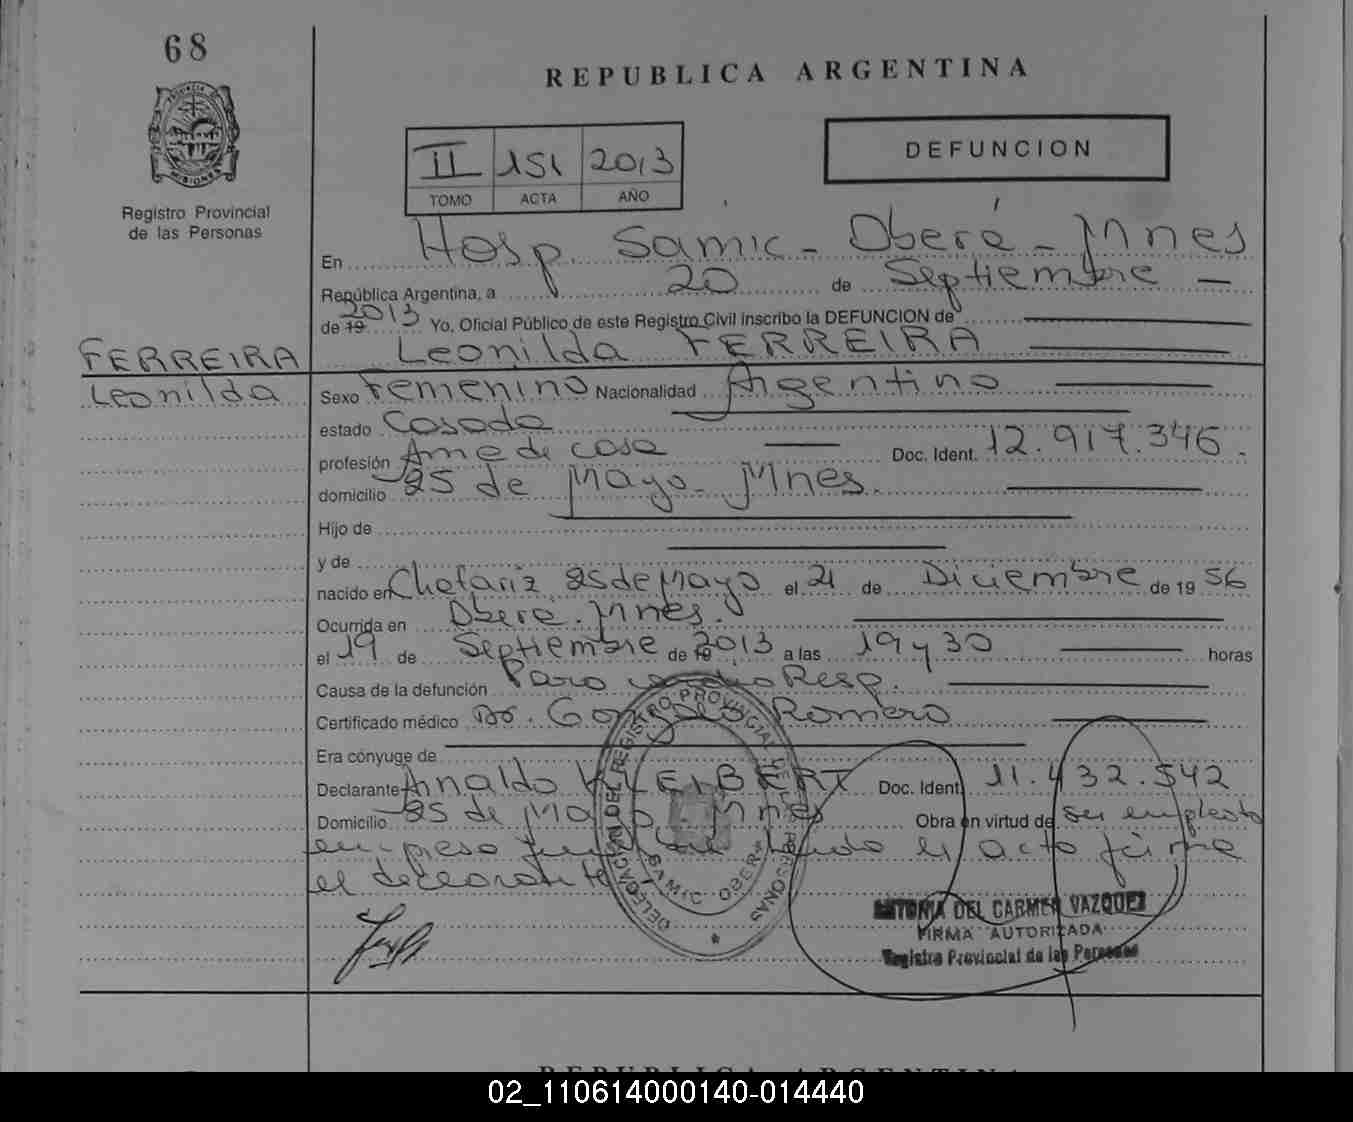 68
REPUBLICA ARGENTINA
II 151 2013
TOMO ACTA AÑO
DEFUNCION
MISIONES
Registro Provincial
de las Personas
En Hosp. Samic - Oberá - Mnes
República Argentina, a 20 de Septiembre
de 19 2013 Yo, Oficial Público de este Registro Civil inscribo la DEFUNCION de
FERREIRA
Leonilda FERREIRA
Leonilda
Sexo Femenino Nacionalidad Argentino
estado Casada
profesión Ama de casa Doc. Ident. 12.917.346.
domicilio 25 de Mayo - Mnes.
Hijo de
y de
nacido en Chafariz 25 de Mayo el 21 de Diciembre de 19 56
Ocurrida en Oberá. Mnes.
el 19 de Septiembre de 19 2013 a las 19 y 30 horas
Causa de la defunción Paro cardio Resp.
Certificado médico Dr. Gonzalo Romero
Era cónyuge de
Declarante Arnaldo KLEIBERT Doc. Ident. 11.432.542
Domicilio 25 de Mayo - Mnes Obra en virtud de ser empleado
empresa leido el acto firma
el declarante
DELEGACION DEL REGISTRO PROVINCIAL DE LAS PERSONAS
SAMIC OBERA
ANTONIA DEL CARMEN VAZQUEZ
FIRMA AUTORIZADA
Registro Provincial de las Personas
REPUBLICA ARGENTINA
02_110614000140-014440